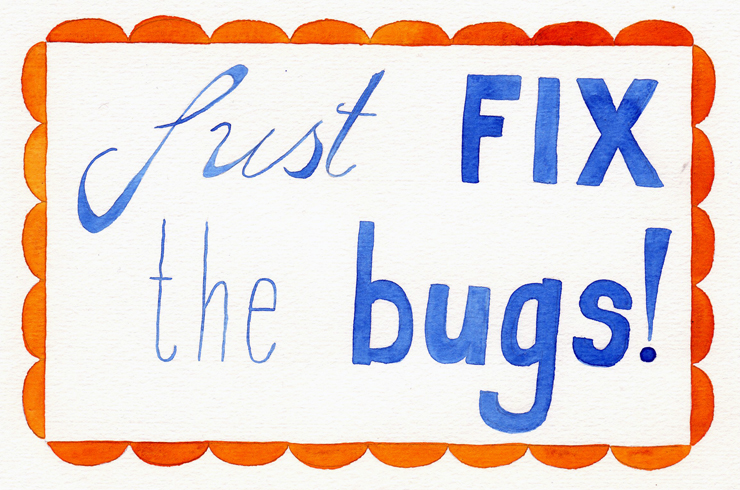 Just FIX
the bugs!